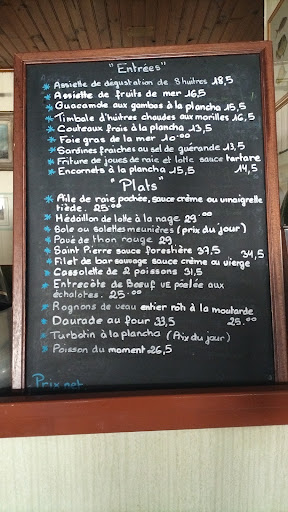 "Entrées"
* Assiette de dégustation de 8 huitres 18,5
* Assiette de fruits de mer 16,5
* Guacamole aux gambas à la plancha 15,5
* Timbale d'huitres chaudes aux morilles 16,5
* Couteaux frais à la plancha 13,5
* Foie gras de la mer 10.00
* Sardines fraiches au sel de guérande 13,5
* Friture de joues de raie et lotte sauce tartare
* Encornets à la plancha 15,5 14,5
"Plats"
* Aile de raie pochée, sauce crème ou vinaigrette
tiède. 25.00
* Médaillon de lotte à la nage 29.00
* Sole ou solettes meunières (prix du jour)
* Pavé de thon rouge 29
* Saint Pierre sauce forestière 37,5
* Filet de bar sauvage sauce crème ou vierge 34,5
* Cassolette de 2 poissons 31,5
* Entrecôte de Bœuf VF poêlée aux
échalotes. 25.00
* Rognons de veau entier rôti à la moutarde
* Daurade au four 33,5 25.00
* Turbotin à la plancha (Prix du jour)
* Poisson du moment 26,5
Prix net